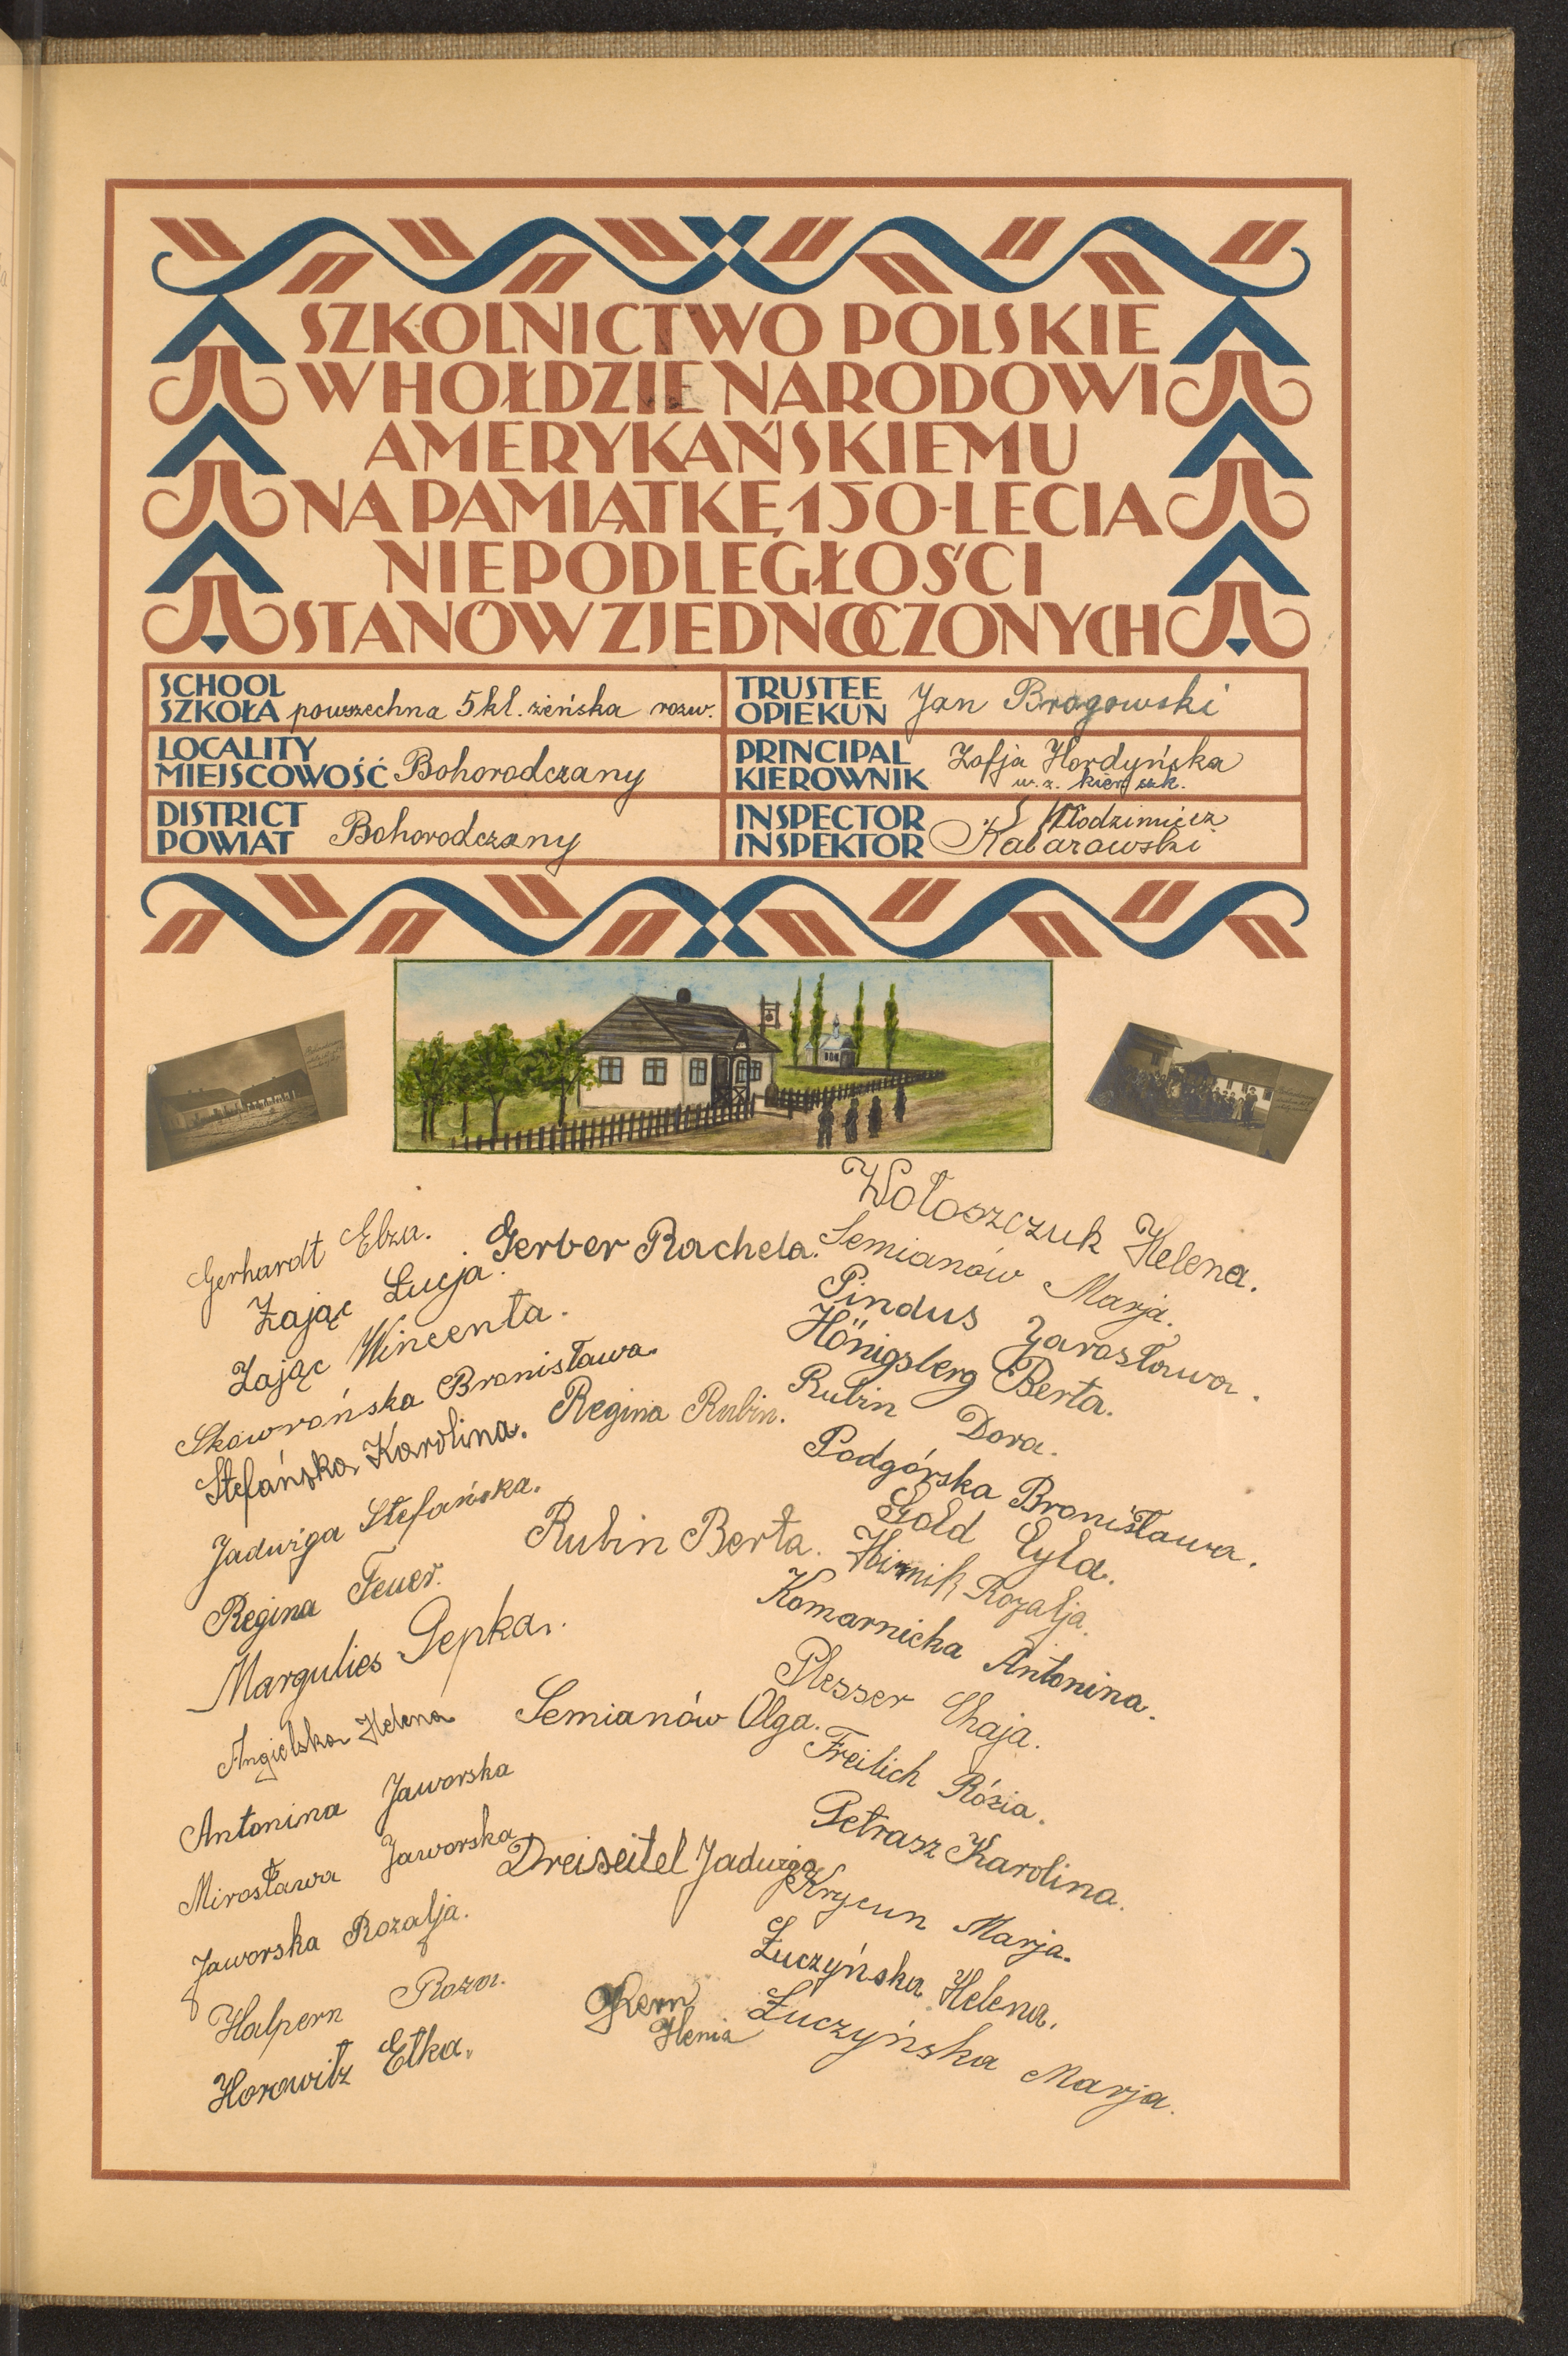 SZKOLNICTWO POLSKIE
W HOŁDZIE NARODOWI
AMERYKAŃSKIEMU
NA PAMIĄTKĘ 150-LECIA
NIEPODLEGŁOŚCI
STANÓW ZJEDNOCZONYCH
SCHOOL
SZKOŁA powszechna 5 kl. żeńska rozw.
TRUSTEE
OPIEKUN Jan Bragowski
LOCALITY
MIEJSCOWOŚĆ Bohorodczany
PRINCIPAL
KIEROWNIK Zofja Hordyńska
w. z. kier. szk.
DISTRICT
POWIAT Bohorodczany
INSPECTOR
INSPEKTOR Włodzimierz
Kabarowski
Gerhardt Elza.
Zając Łucja.
Zając Wincenta.
Skowrońska Bronisława.
Stefańska Karolina.
Jadwiga Stefańska.
Regina Feuer.
Margulies Pepka.
Angielska Helena
Antonina Jaworska
Mirosława Jaworska
Jaworska Rozalja.
Halpern Roza.
Horowitz Etka.
Gerber Rachela.
Regina Rubin.
Rubin Berta.
Semianów Olga.
Dreiseitel Jadwiga
Kern
Henia
Wołoszczuk Helena.
Semianów Marja.
Pindus Jarosława.
Hönigsberg Berta.
Rubin Dora.
Podgórska Bronisława.
Gold Cyla.
Hirnik Rozalja.
Komarnicka Antonina.
Plesser Chaja.
Freilich Rózia.
Petrasz Karolina.
Krycun Marja.
Łuczyńska Helena.
Łuczyńska Marja.